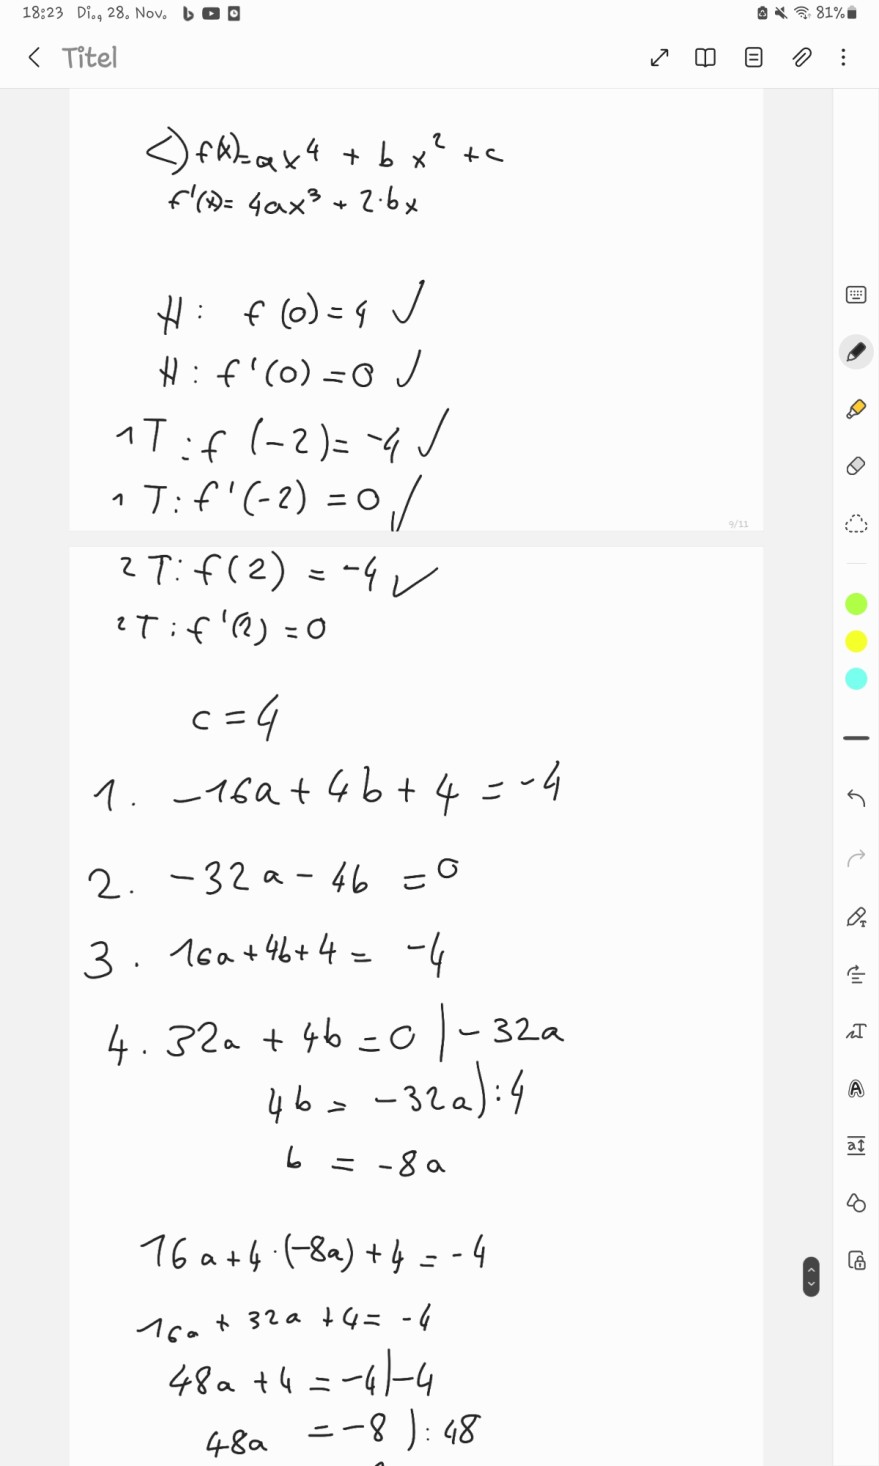 18:23 Di., 28. Nov. 81%
Titel
c) f(x)=ax⁴ + bx² +c
f'(x)= 4ax³ + 2·bx
H: f(0)=4 ✓
H: f'(0)=0 ✓
1T: f(-2)=-4 ✓
1T: f'(-2)=0 ✓
9/11
2T: f(2) = -4 ✓
2T: f'(2)=0
c=4
1. -16a+4b+4=-4
2. -32a-4b=0
3. 16a+4b+4= -4
4. 32a+4b=0 |-32a
4b = -32a|:4
b = -8a
16a+4·(-8a)+4=-4
16a+32a+4=-4
48a+4=-4|-4
48a =-8 |:48